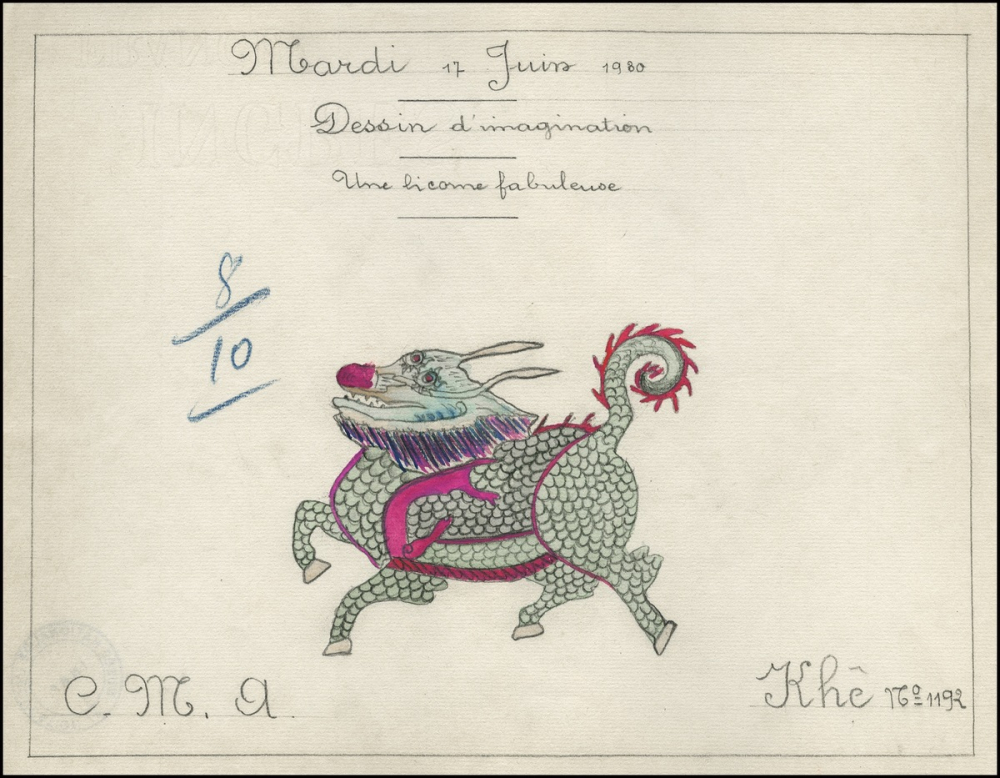 Mardi 17 Juin 1930
Dessin d'imagination
Une licorne fabuleuse
8
10
C. M. A.
Khê Nº 1192